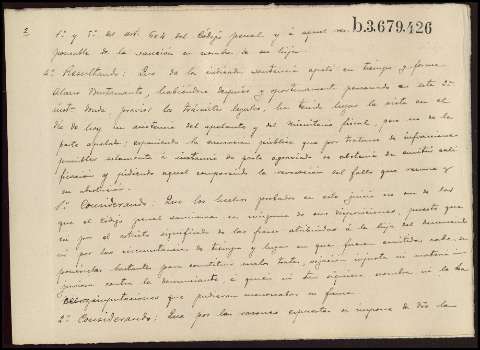 2
b.3.679.426
1º y 5º del art. 604 del Código penal y á aquel res-
ponsable de la sanción en nombre de su hija.
4º Resultando: Que de la indicada sentencia apeló en tiempo y forma
Álvaro Bustamante, habiéndose después y oportunamente personado en esta 2ª
instancia, previos los trámites legales, ha tenido lugar la vista en el
día de hoy con asistencia del apelante y del Ministerio fiscal, pero no de la
parte apelada; exponiendo la acusación pública que por tratarse de infracciones
punibles solamente á instancia de parte agraviada se abstenía de emitir cali-
ficación y pidiendo aquel compareciente la revocación del fallo que recurre y
su absolución.
1º Considerando: Que los hechos probados en este juicio no son de los
que el Código penal sanciona en ninguna de sus disposiciones, puesto que
ni por el estricto significado de las frases atribuidas á la hija del denunciado
ni por las circunstancias de tiempo y lugar en que fueron emitidas cabe
suponerlas bastante para constituir malos tratos, vejación injusta ni
injuria contra la denunciante, á quien ni tan siquiera nombra ni la
imputaciones que pudieran menoscabar su fama.
2º Considerando: Que por las razones expuestas se impone de la